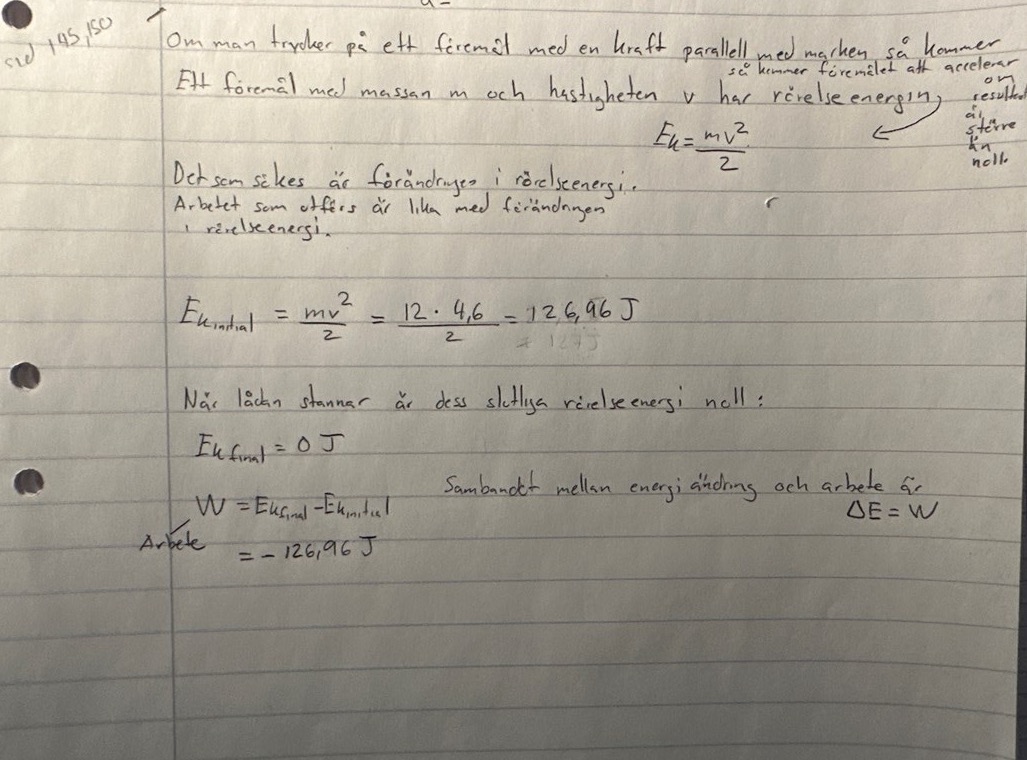 sid 145, 150
Om man trycker på ett föremål med en kraft parallell med marken så kommer
så kommer föremålet att accelerar
om
resultat
är
större
än
noll.
Ett föremål med massan m och hastigheten v har rörelseenergin,
Ek = mv²/2
Det som sökes är förändringen i rörelseenergi.
Arbetet som utförs är lika med förändringen
i rörelseenergi.
Ek initial = mv²/2 = 12 · 4,6/2 = 126,96 J
≈ 127 J
När lådan stannar är dess slutliga rörelseenergi noll:
Ek final = 0 J
Sambandet mellan energiändring och arbete är
ΔE = W
W = Ek final - Ek initial
Arbete
= - 126,96 J